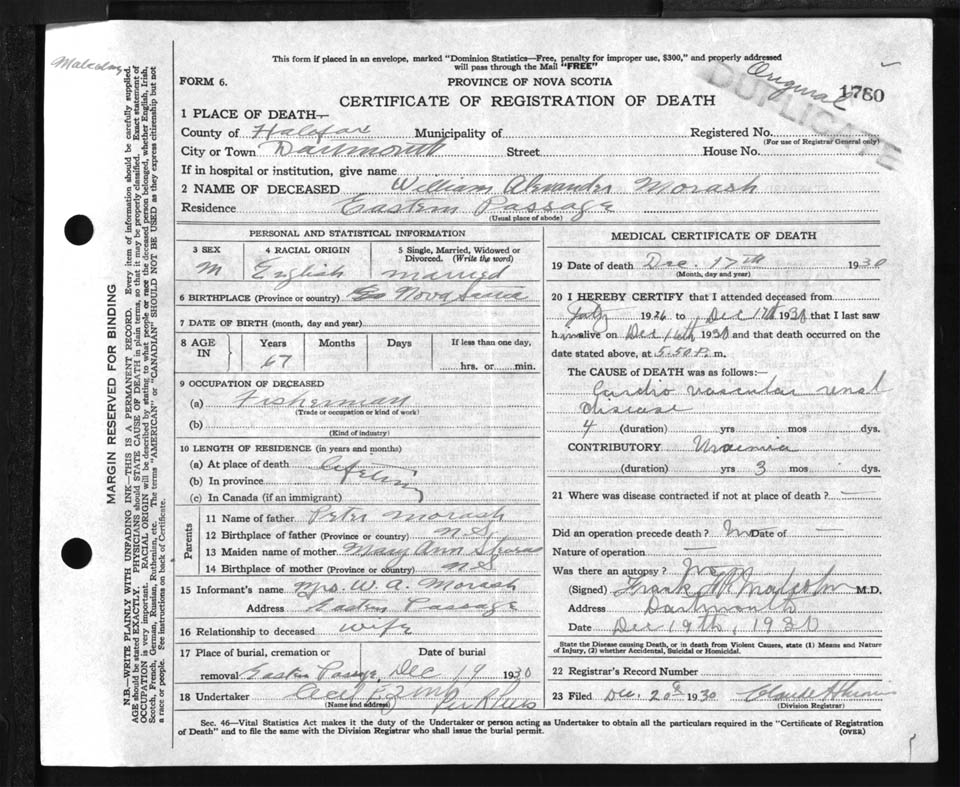 Malcolm
This form if placed in an envelope, marked "Dominion Statistics—Free, penalty for improper use, $300," and properly addressed
will pass through the Mail "FREE"
FORM 6.
PROVINCE OF NOVA SCOTIA
Original
1760
DUPLICATE
CERTIFICATE OF REGISTRATION OF DEATH
1 PLACE OF DEATH—
County of Halifax Municipality of Registered No.
(For use of Registrar General only)
City or Town Dartmouth Street House No.
If in hospital or institution, give name
2 NAME OF DECEASED William Alexander Morash
Residence Eastern Passage
(Usual place of abode)
PERSONAL AND STATISTICAL INFORMATION
3 SEX 4 RACIAL ORIGIN 5 Single, Married, Widowed or Divorced. (Write the word)
M English married
6 BIRTHPLACE (Province or country) Nova Scotia
7 DATE OF BIRTH (month, day and year)
8 AGE IN Years Months Days If less than one day,
67 hrs. or min.
9 OCCUPATION OF DECEASED
(a) Fisherman
(Trade or occupation or kind of work)
(b)
(Kind of industry)
10 LENGTH OF RESIDENCE (in years and months)
(a) At place of death
(b) In province
(c) In Canada (if an immigrant)
Parents
11 Name of father Peter Morash
12 Birthplace of father (Province or country) N S
13 Maiden name of mother Mary Ann
14 Birthplace of mother (Province or country) N S
15 Informant's name Mrs. W. A. Morash
Address Eastern Passage
16 Relationship to deceased wife
17 Place of burial, cremation or Date of burial
removal Eastern Passage Dec 19 1930
18 Undertaker
(Name and address)
MEDICAL CERTIFICATE OF DEATH
19 Date of death Dec. 17th 1930
(Month, day and year)
20 I HEREBY CERTIFY that I attended deceased from
July 1926 to Dec 17th 1930 that I last saw
him alive on Dec 16th 1930 and that death occurred on the
date stated above, at 5.50 P. m.
The CAUSE of DEATH was as follows:—
Cardio vascular renal
disease
4 (duration) yrs mos dys.
CONTRIBUTORY Uraemia
(duration) yrs 3 mos dys.
21 Where was disease contracted if not at place of death? —
Did an operation precede death? No Date of —
Nature of operation —
Was there an autopsy? No
(Signed) Frank Malcolm M.D.
Address Dartmouth
Date Dec 19th, 1930
State the Disease causing Death, or in death from Violent Causes, state (1) Means and Nature
of Injury, (2) whether Accidental, Suicidal or Homicidal.
22 Registrar's Record Number
23 Filed Dec. 20th 1930
(Division Registrar)
Sec. 46—Vital Statistics Act makes it the duty of the Undertaker or person acting as Undertaker to obtain all the particulars required in the "Certificate of Registration
of Death" and to file the same with the Division Registrar who shall issue the burial permit.
(OVER)
MARGIN RESERVED FOR BINDING
N.B.—WRITE PLAINLY WITH UNFADING INK—THIS IS A PERMANENT RECORD. Every item of information should be carefully supplied.
AGE should be stated EXACTLY. PHYSICIANS should STATE CAUSE OF DEATH in plain terms, so that it may be properly classified. Exact statement of
OCCUPATION is very important. RACIAL ORIGIN will be described by stating to what people or race the deceased person belonged, whether English, Irish,
Scotch, French, German, Russian, Ruthenian, etc. The terms "AMERICAN" or "CANADIAN" SHOULD NOT BE USED as they express citizenship but not
a race or people. See instructions on back of Certificate.